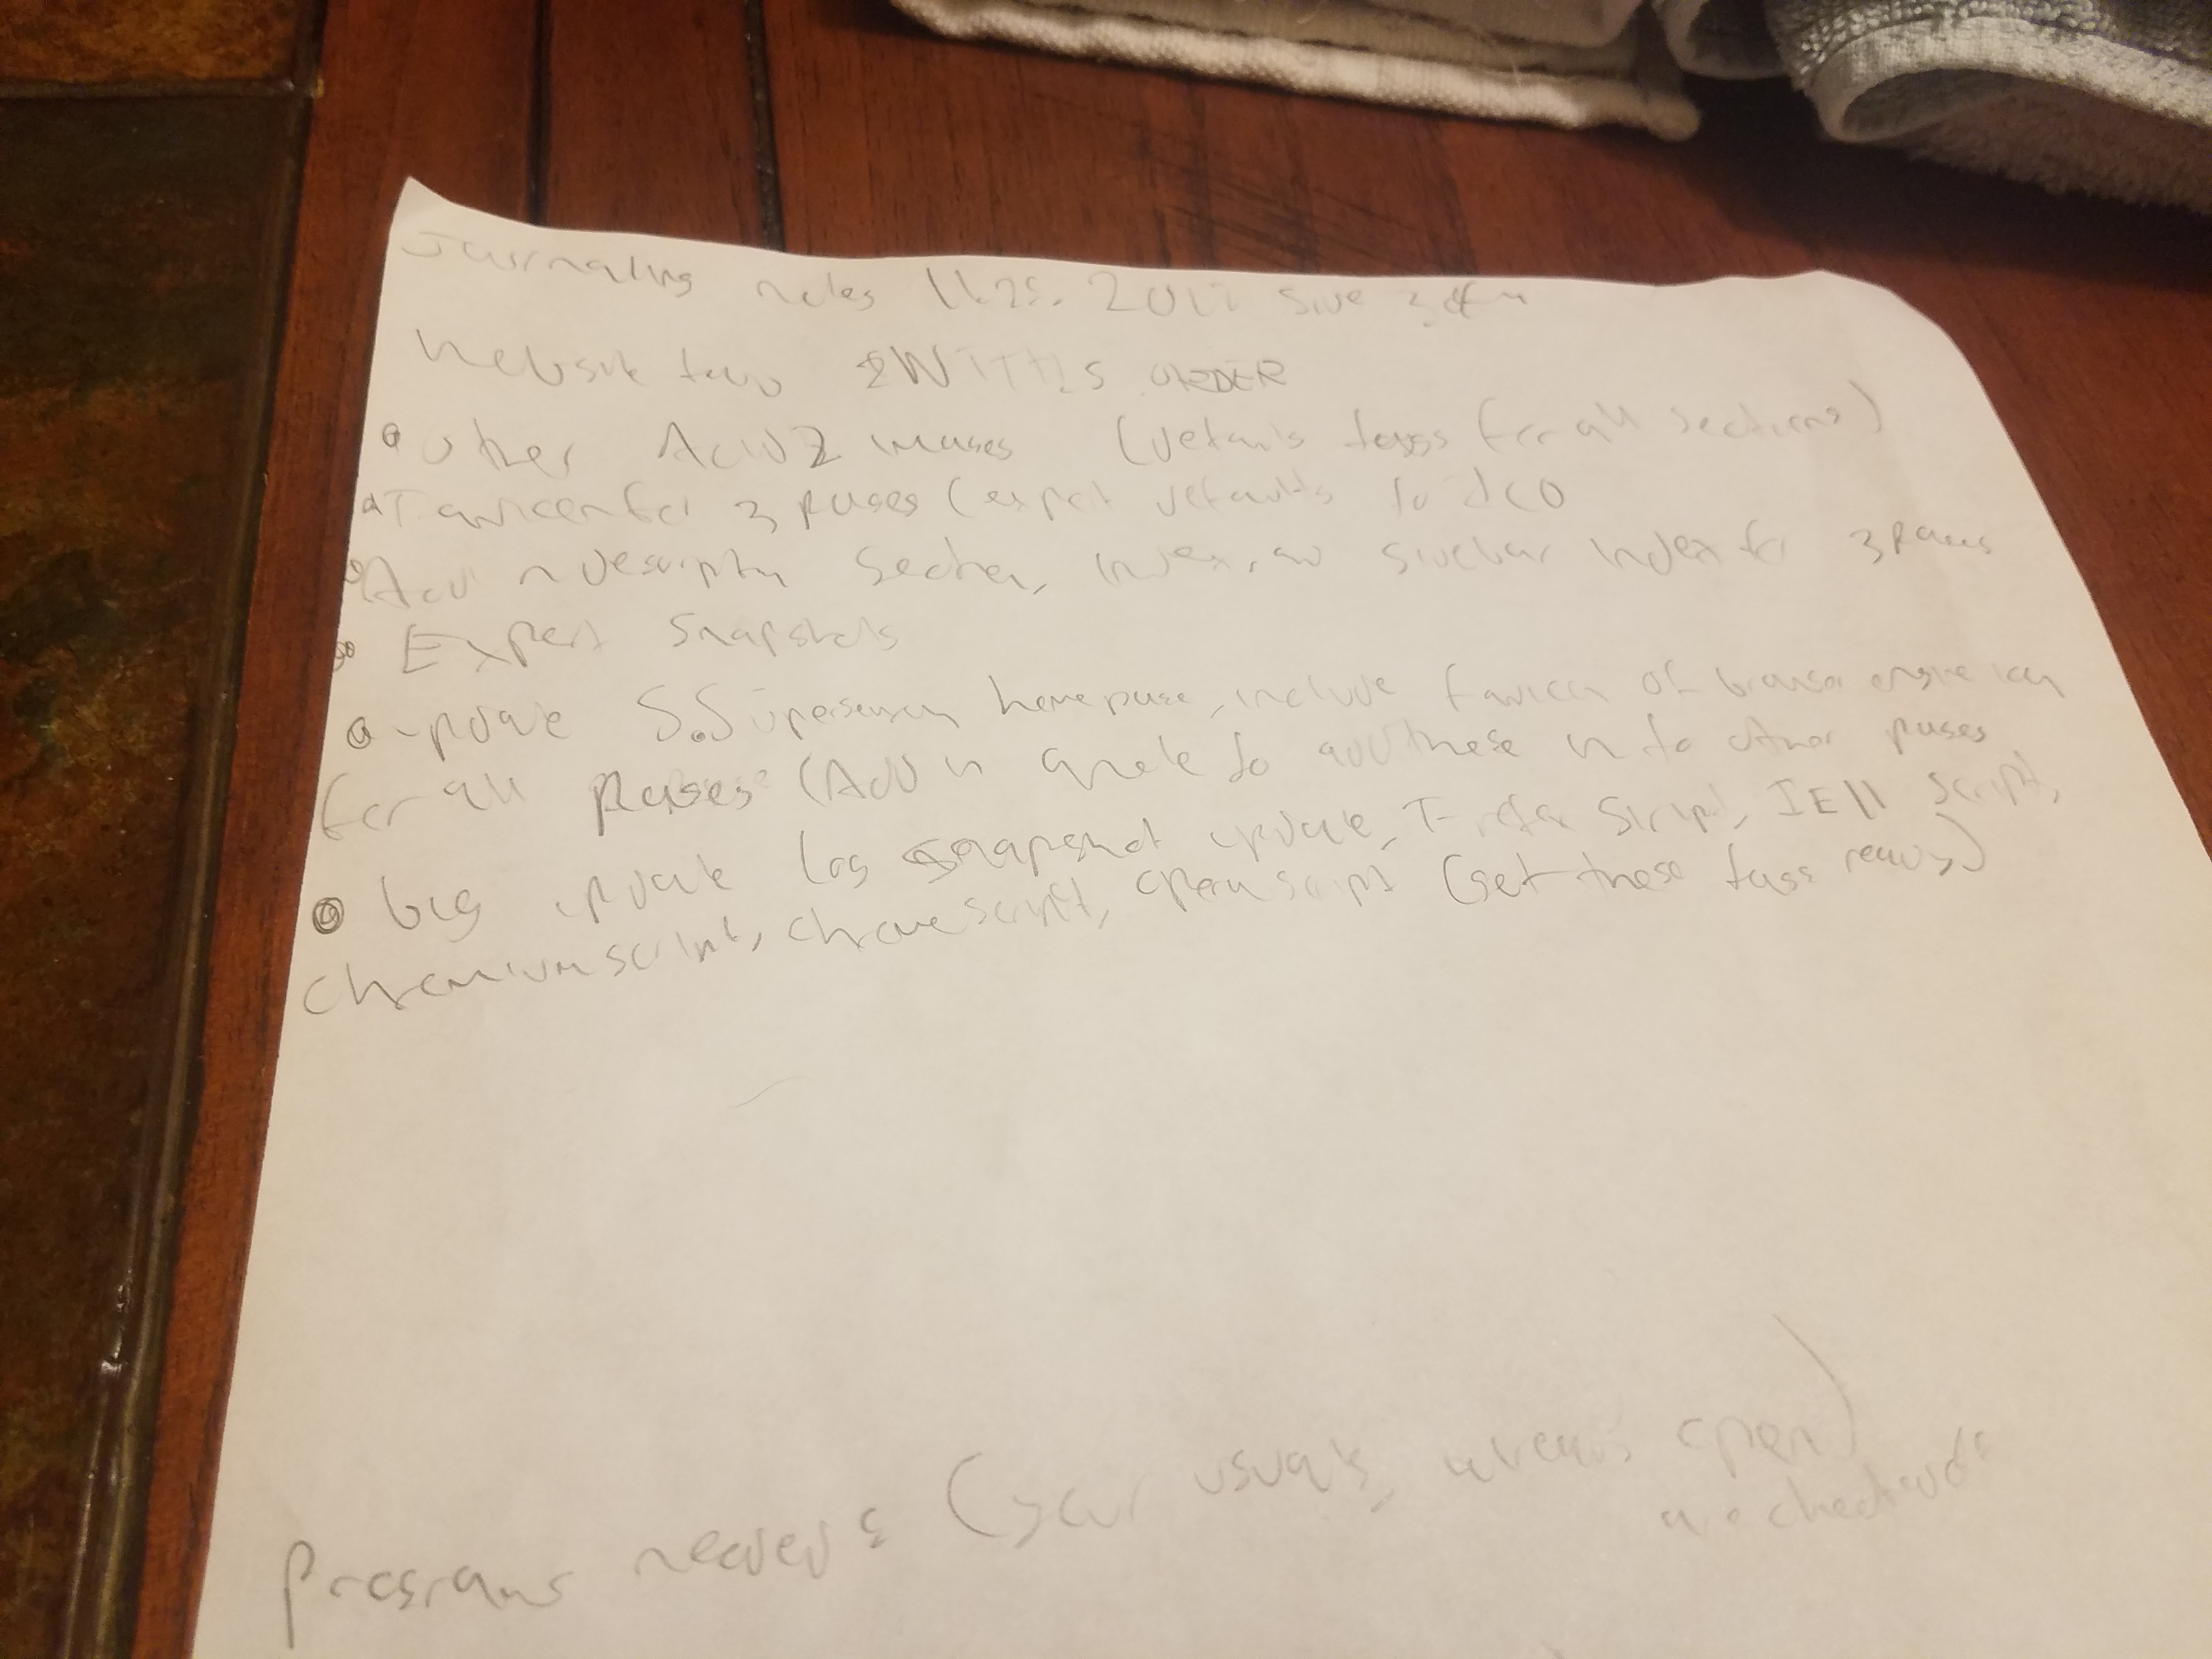 Journaling notes 11.25. 2017 side 3 of 4
Website todo IN THIS ORDER
Other Acid2 images (details tags for all sections)
favicon for 3 pages (export defaults to ICO
Add a description section, index, and sidebar index for 3 pages
Export snapshots
update S.S homepage, include favicon of browser engine icon
for all pages (Add in quote to add these in to other pages
big update log snapshot update, script, IE11 script,
chromium script, chrome script, opera script (get these tags ready)
Programs needed: (your usuals, open)